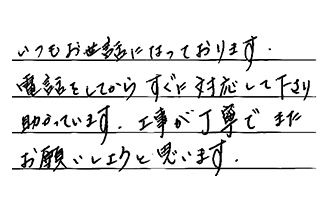 いつもお世話になっております.
電話をしてから すぐに対応して下さり
助かっています. 工事が丁寧で また
お願いしようと思います.